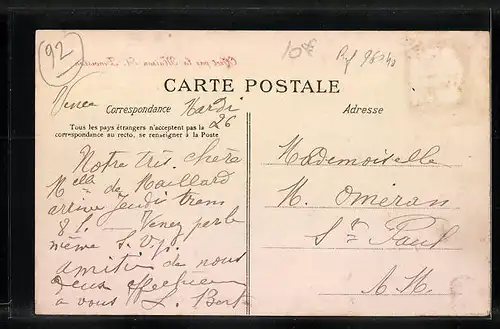 92
10f
Offert par la Maison
CARTE POSTALE
Vence
Correspondance Mardi
Adresse
Tous les pays étrangers n'acceptent pas la 26
correspondance au recto, se renseigner à la Poste
Notre très chère
Melle de Maillard
arrive Jeudi tram
8 h. Venez par le
même S. V. p.
amitié de nous
à vous L.
Mademoiselle
M. Omeran
St Paul
A. M.